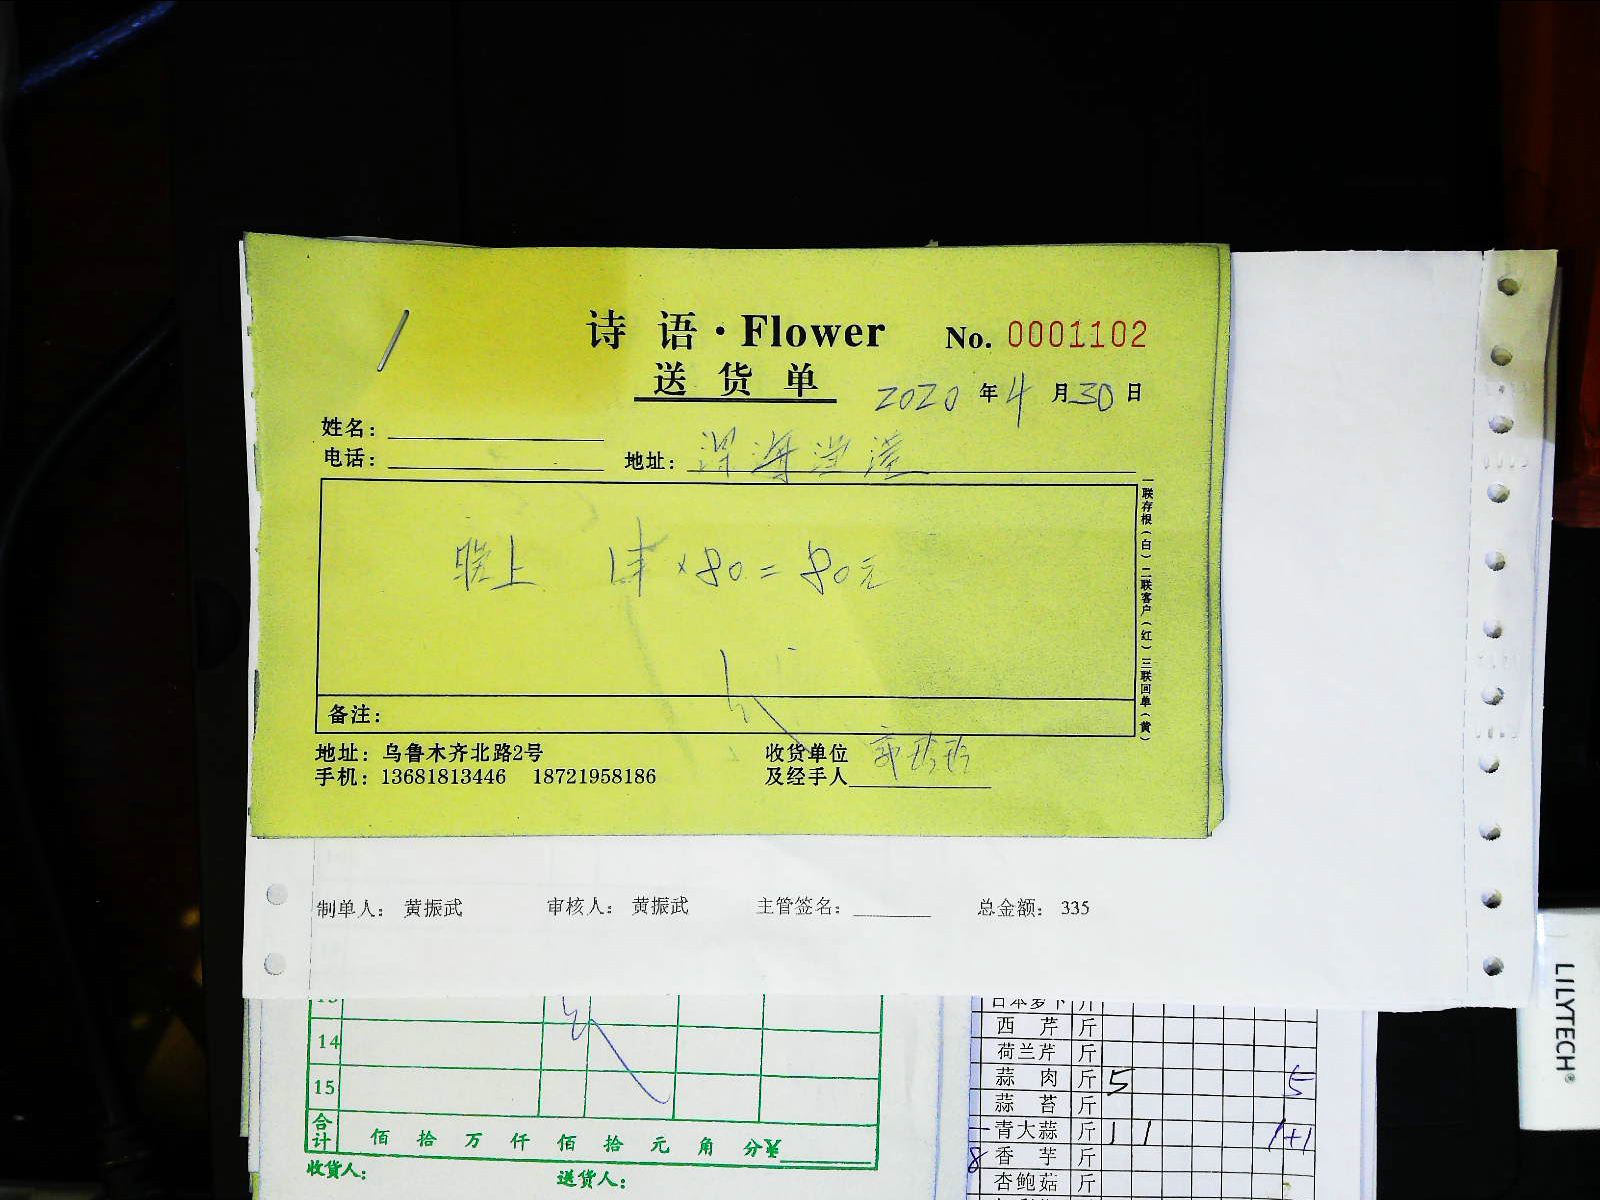 诗 语·Flower No. 0001102
送 货 单 2020 年 4 月 30 日
姓名：
电话： 地址：
晚上 1 × 80 = 80元
备注：
一联存根（白）二联客户（红）三联回单（黄）
地址：乌鲁木齐北路2号 收货单位
手机：13681813446 18721958186 及经手人
制单人： 黄振武 审核人： 黄振武 主管签名： 总金额： 335
14
15
合计 佰 拾 万 仟 佰 拾 元 角 分¥
收货人： 送货人：
日本萝卜 斤
西 芹 斤
荷兰芹 斤
蒜 肉 斤 5 5
蒜 苔 斤
青大蒜 斤 1 1 1+1
8 香 芋 斤
杏鲍菇 斤
LILYTECH®